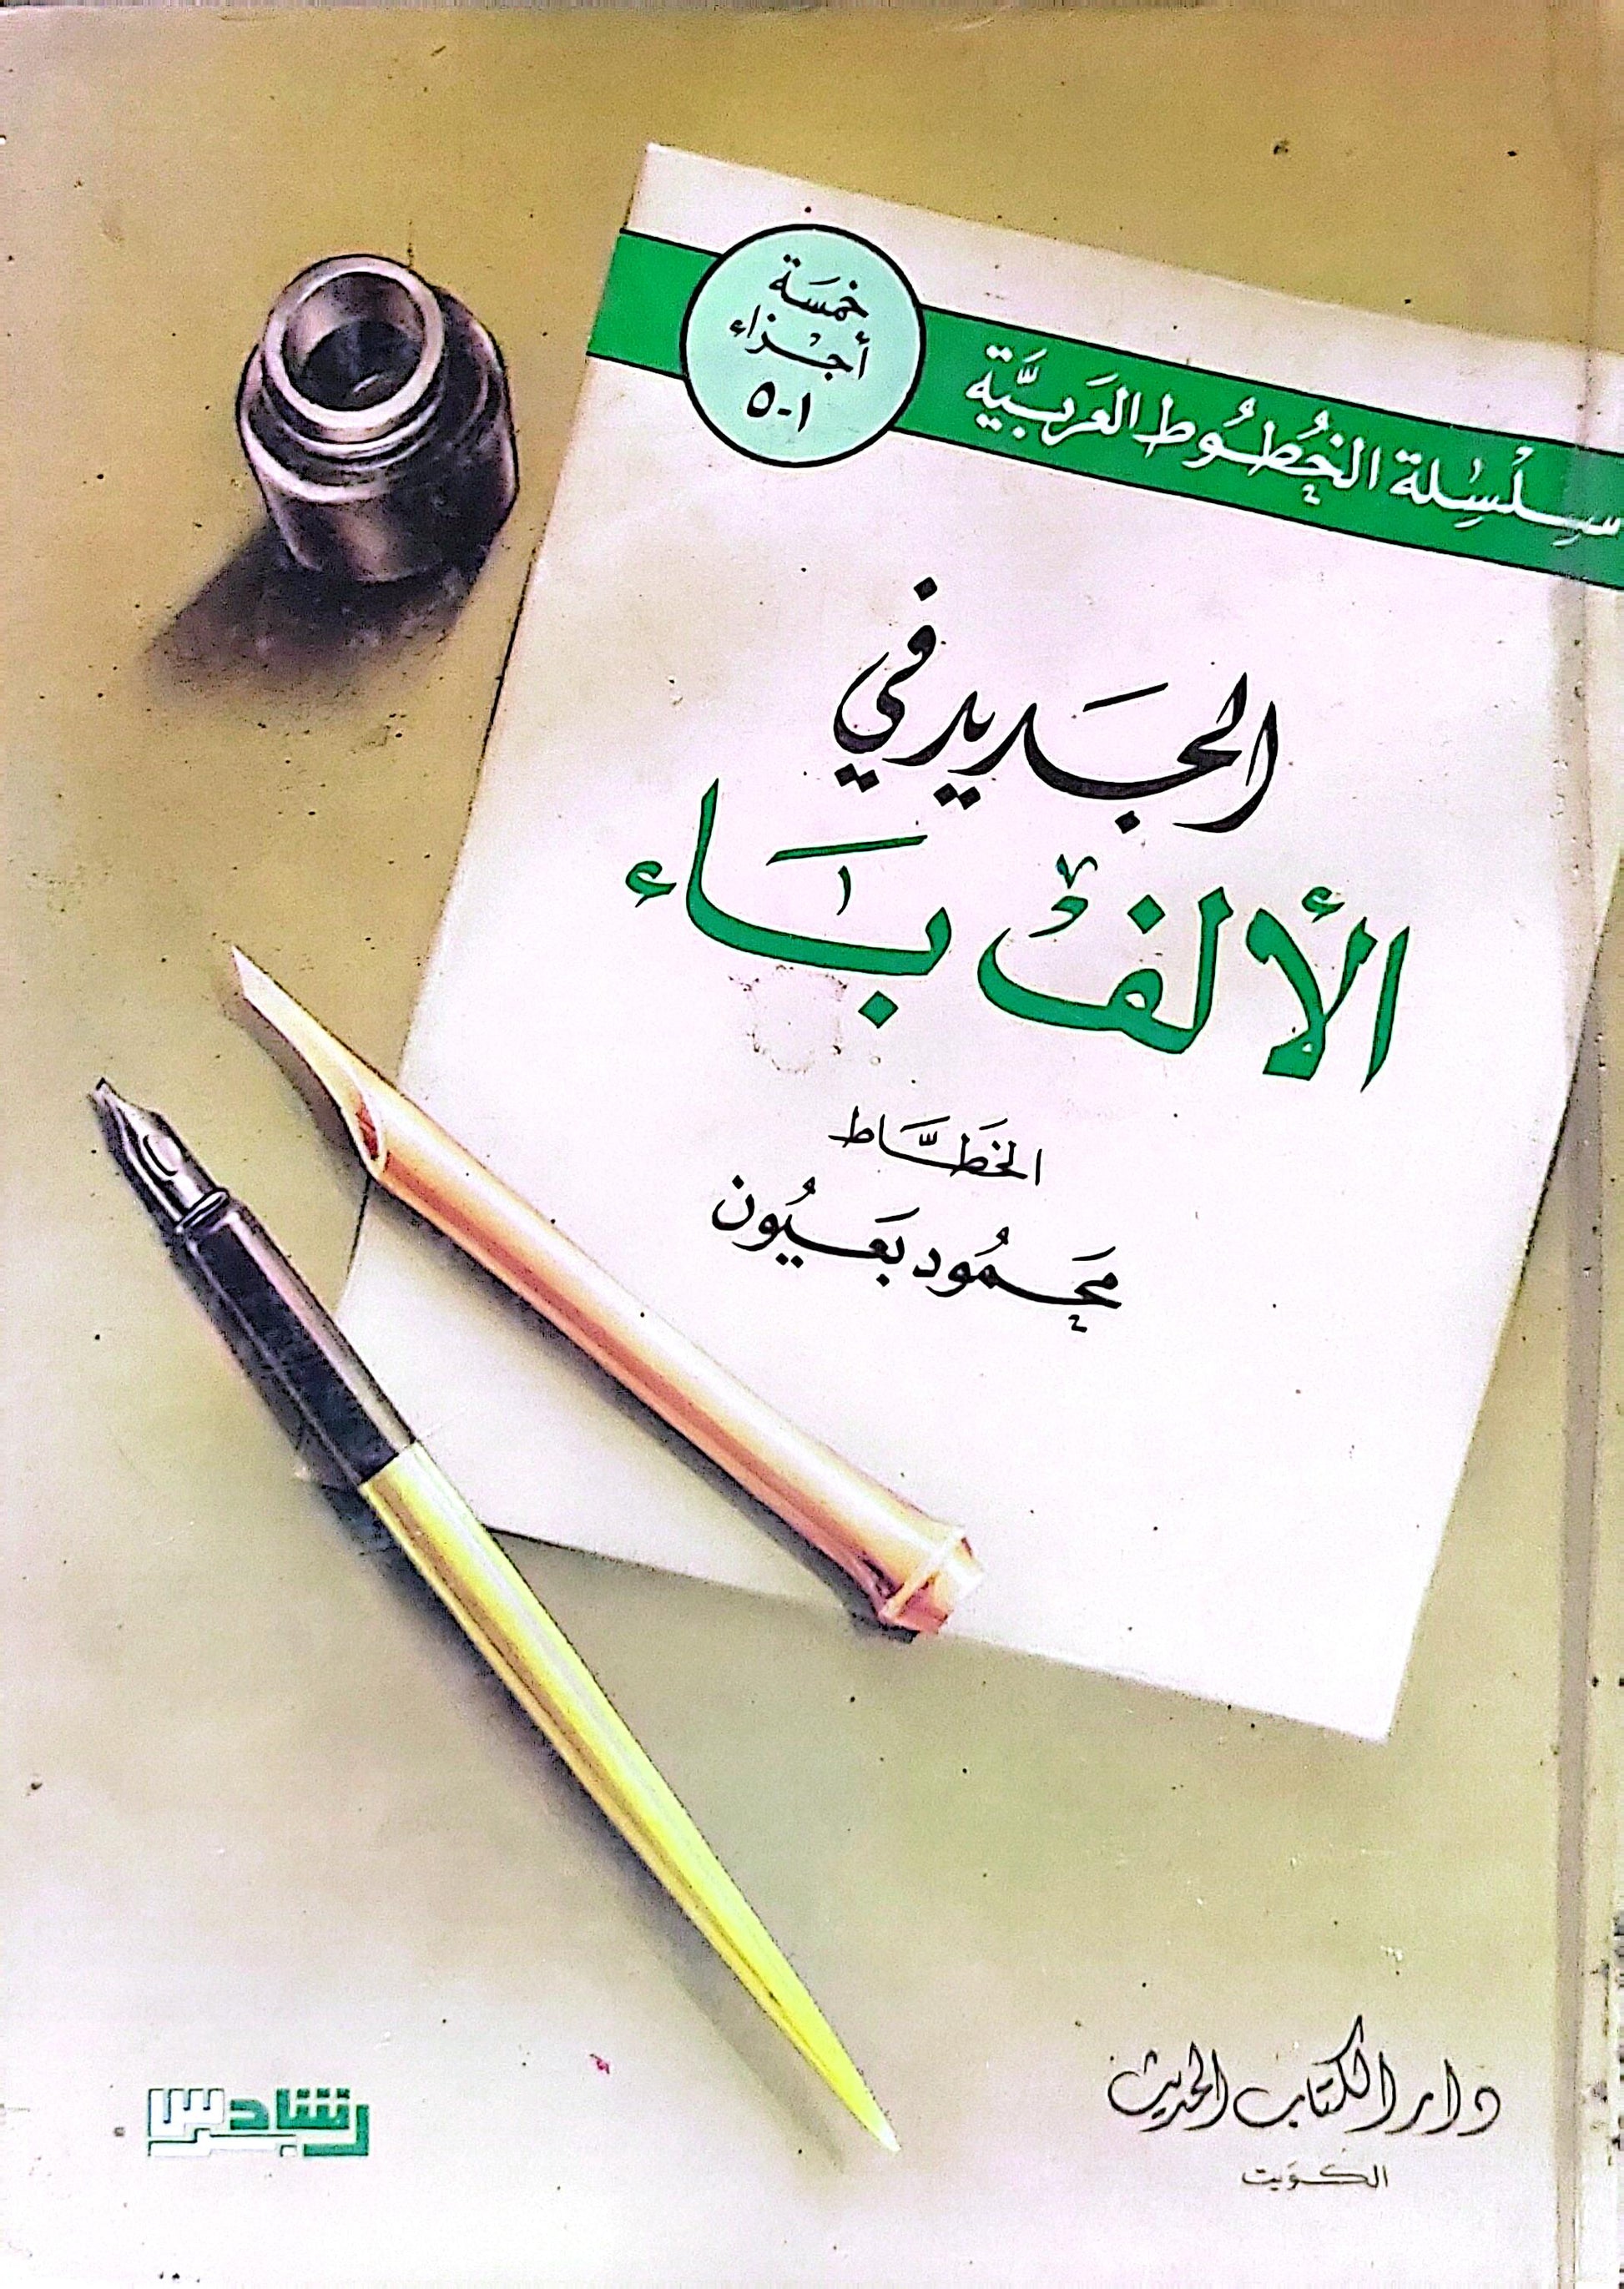 سِلْسِلة الخُطُوط العَربيَّة
خمسَة
أجْزاء
١-٥
الجَديد في
الألفْ بَاء
الخَطَّاط
مَحمُود بَعيُون
دار الكتاب الحديث
الكويت
رشاد برس